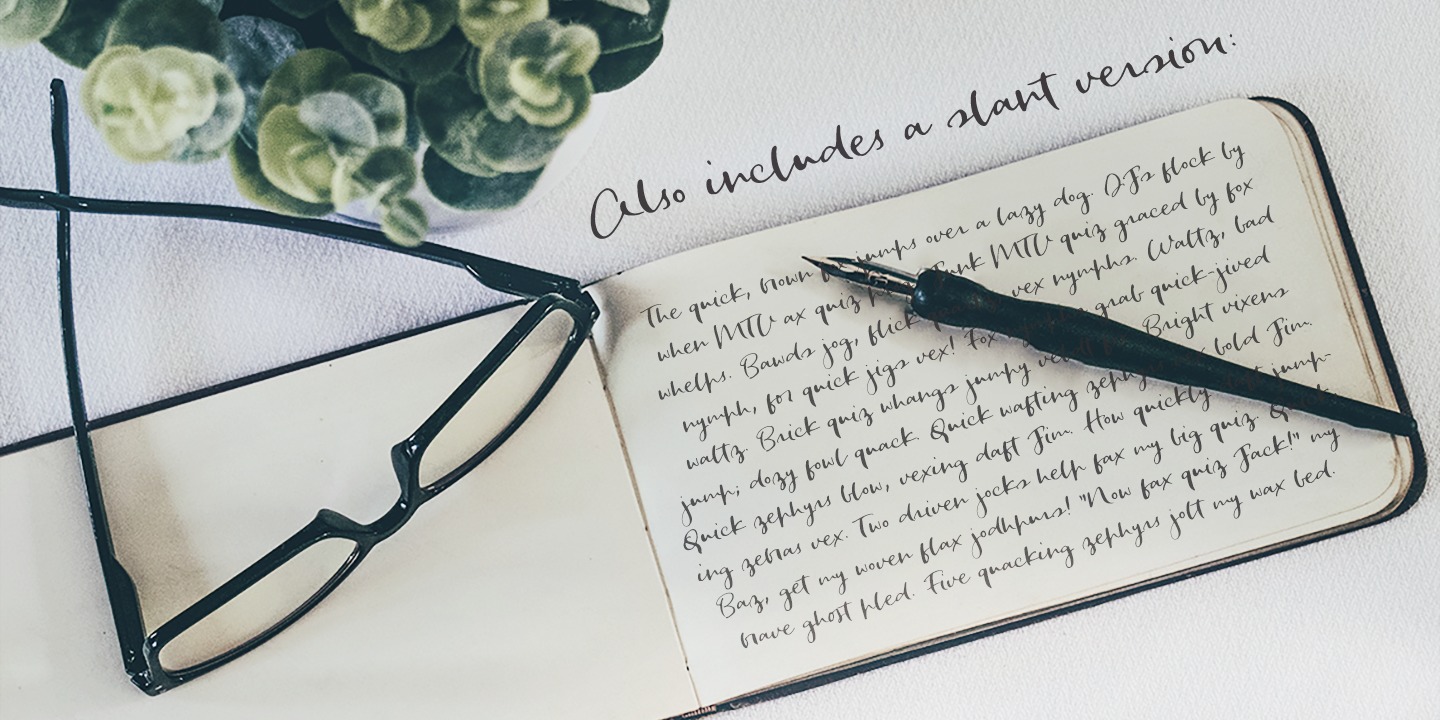 Also includes a slant version:
The quick, brown jumps over a lazy dog. DJs flock by
when MTV ax quiz Junk MTV quiz graced by fox
whelps. Bawds jog, flick vex nymphs. Waltz, bad
nymph, for quick jigs vex! Fox grab quick-jived
waltz. Brick quiz whangs jumpy Bright vixens
jump; dozy fowl quack. Quick wafting bold Jim.
Quick zephyrs blow, vexing daft Jim. How quickly jump-
ing zebras vex. Two driven jocks help fax my big quiz.
Baz, get my woven flax jodhpurs! "Now fax quiz Jack!" my
brave ghost pled. Five quacking zephyrs jolt my wax bed.